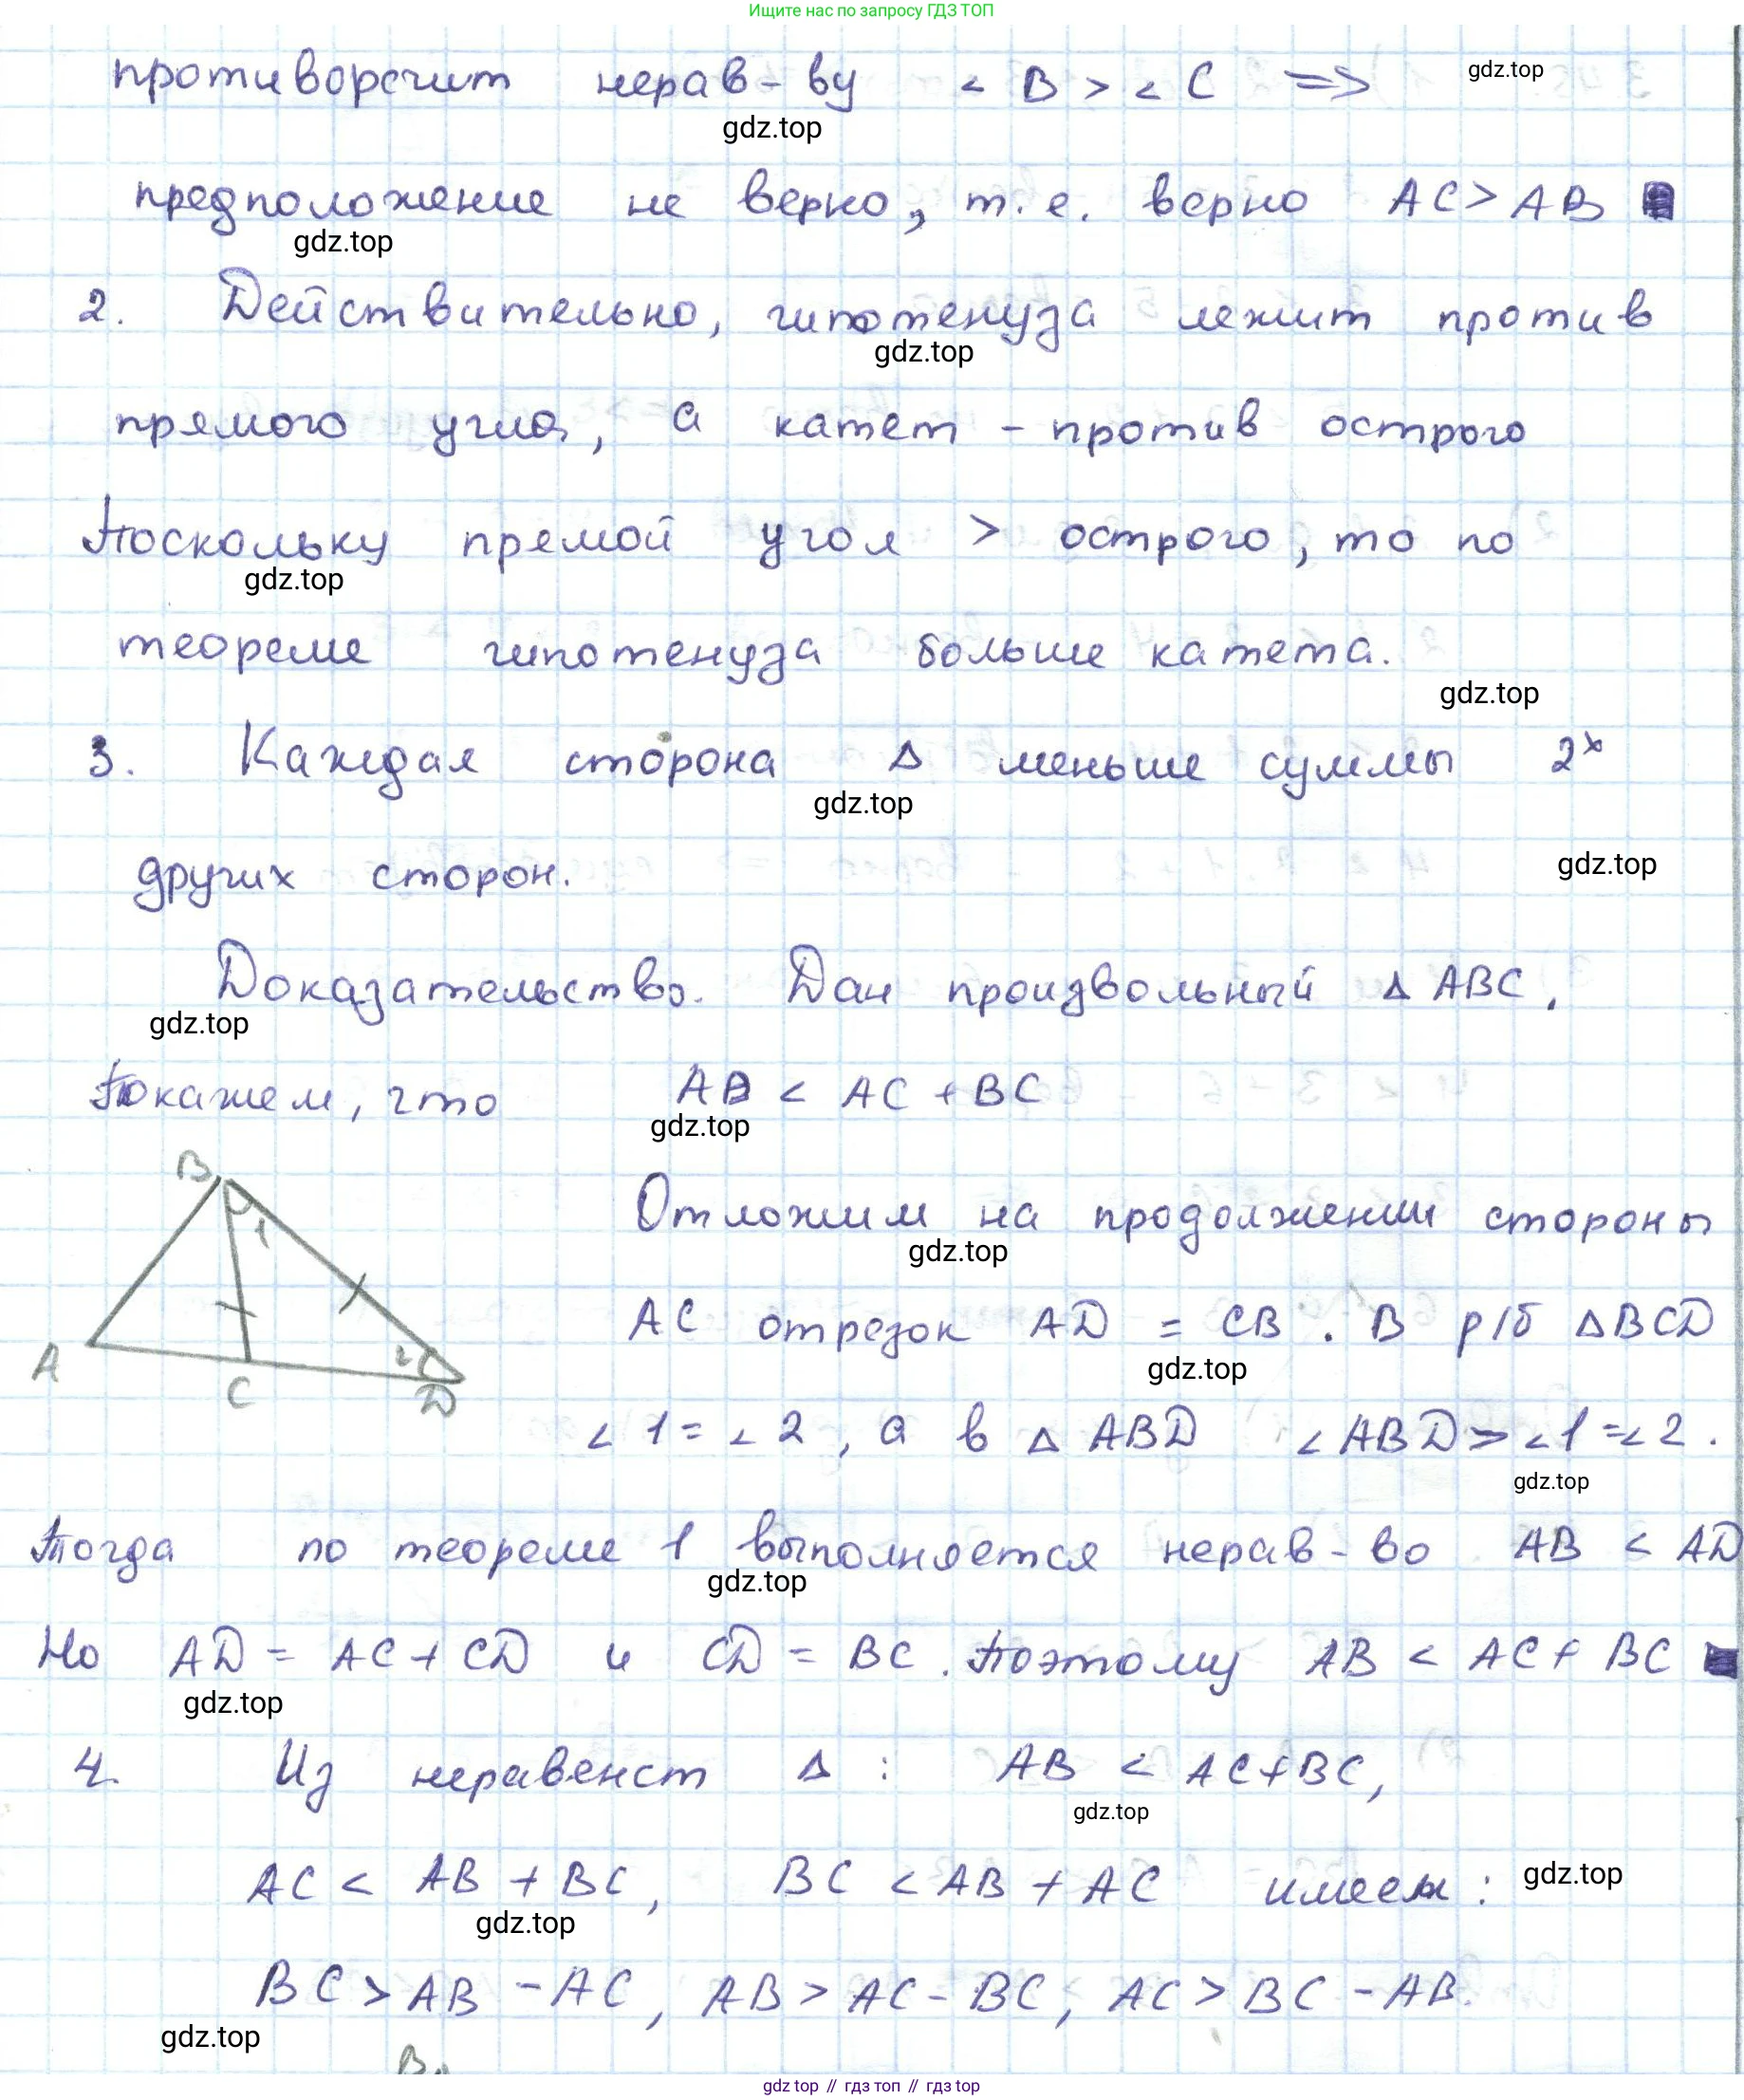 Ищите нас по запросу ГДЗ ТОП
противоречит нерав-ву < B > < C =>
gdz.top
gdz.top
предположение не верно, т.е. верно AC > AB
gdz.top
2. Действительно, гипотенуза лежит против
gdz.top
прямого угла, а катет - против острого
Поскольку прямой угол > острого, то по
gdz.top
теореме гипотенуза больше катета.
gdz.top
3. Каждая сторона Δ меньше суммы 2х
gdz.top
других сторон.
gdz.top
Доказательство. Дан произвольный Δ ABC.
gdz.top
Покажем, что AB < AC + BC
gdz.top
B
1
A
C
2
D
Отложим на продолжении стороны
gdz.top
AC отрезок AD = CB. В р/б ΔBCD
gdz.top
< 1 = < 2, а в Δ ABD < ABD > < 1 = < 2.
gdz.top
Тогда по теореме 1 выполняется нерав-во AB < AD
gdz.top
Но AD = AC + CD и CD = BC. Поэтому AB < AC + BC
gdz.top
4. Из неравенст Δ : AB < AC + BC,
gdz.top
AC < AB + BC, BC < AB + AC имеем:
gdz.top
gdz.top
BC > AB - AC, AB > AC - BC, AC > BC - AB.
gdz.top
B
gdz top // гдз топ // гдз top